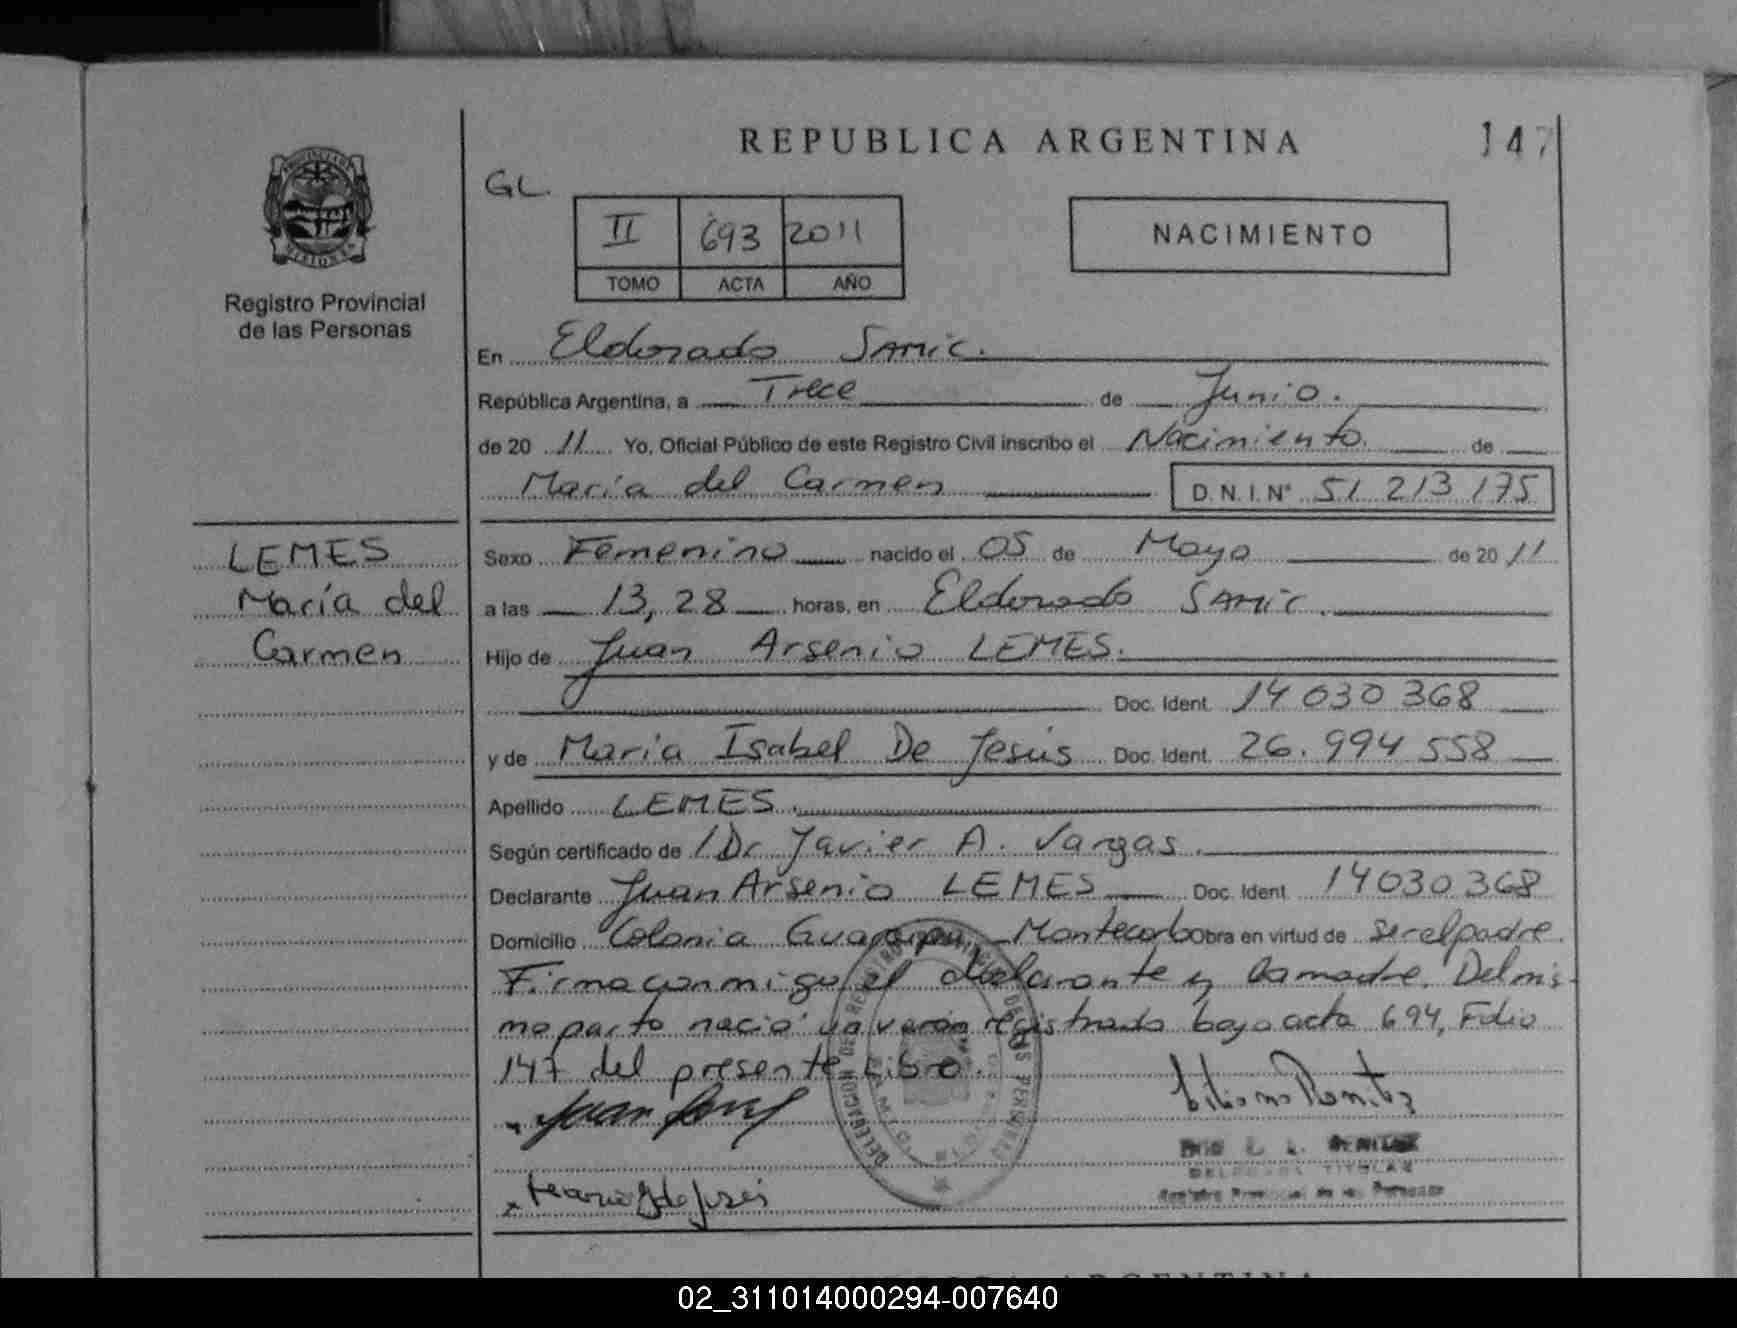 REPUBLICA ARGENTINA
147
GL.
II 693 2011
TOMO ACTA AÑO
NACIMIENTO
Registro Provincial
de las Personas
En Eldorado SAMIC.
República Argentina, a Trece de Junio.
de 20 11 Yo, Oficial Público de este Registro Civil inscribo el Nacimiento de
María del Carmen D.N.I. N° 51 213 175
LEMES
María del
Carmen
Sexo Femenino nacido el 05 de Mayo de 20 11
a las 13,28 horas, en Eldorado SAMIC.
Hijo de Juan Arsenio LEMES.
Doc. Ident. 14 030 368
y de Maria Isabel De Jesús Doc. Ident. 26.994 558
Apellido LEMES.
Según certificado de /Dr Javier A. Vargas.
Declarante Juan Arsenio LEMES Doc. Ident. 14 030 368
Domicilio Colonia Montecarlo Obra en virtud de ser el padre.
Firma conmigo el declarante y la madre. Del mis-
mo parto nació un varón registrado bajo acta 694, Folio
147 del presente Libro.
DELEGACION DE REGISTRO DE LAS PERSONAS
DELEGADA TITULAR
Registro Provincial de las Personas
REPUBLICA ARGENTINA
02_311014000294-007640